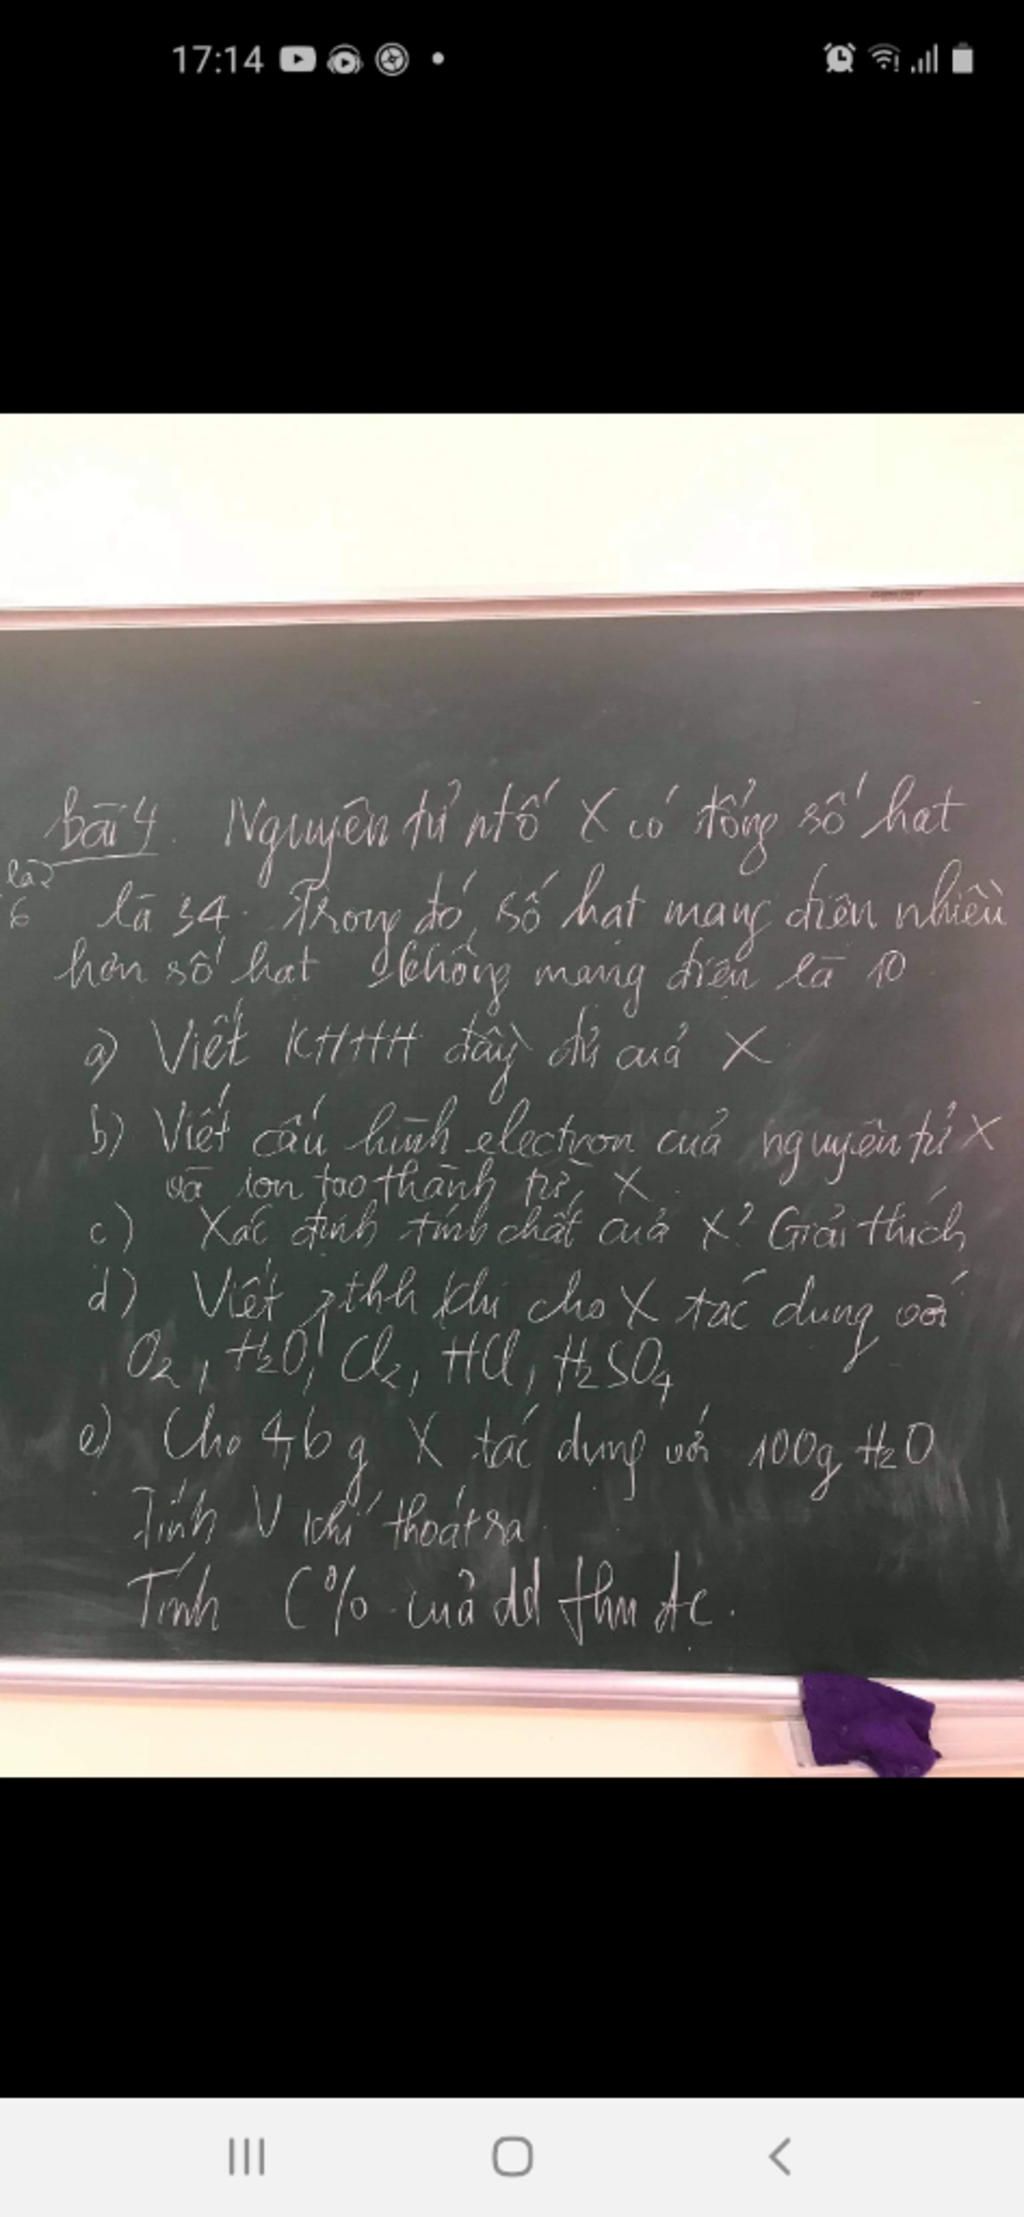 17:14
Bài 4. Nguyên tử ntố X có tổng số hạt
là 34. Trong đó, số hạt mang điện nhiều
hơn số hạt không mang điện là 10
a) Viết KHHH đầy đủ cuả X
b) Viết cấu hình electron cuả nguyên tử X
và ion tạo thành từ X
c) Xác định tính chất cuả X? Giải thích
d) Viết pthh khi cho X tác dụng với
O2, H2O, Cl2, HCl, H2SO4
e) Cho 4,6 g X tác dụng với 100g H2O
Tính V khí thoát ra
Tính C% cuả dd thu đc.